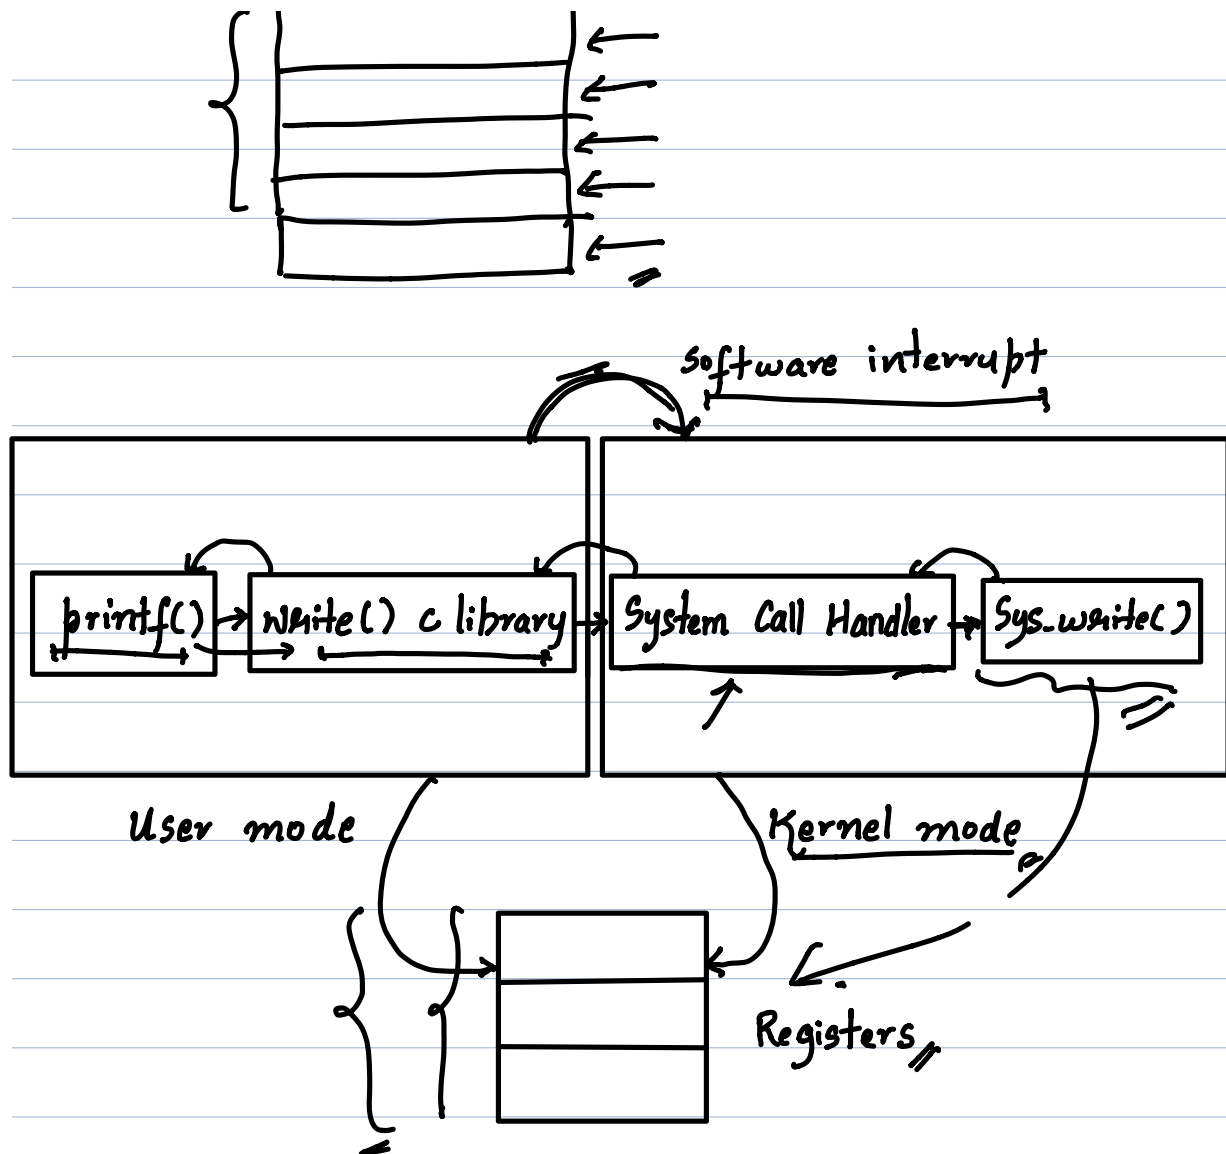 software interrupt
printf() write() c library System Call Handler Sys_write()
User mode Kernel mode
Registers